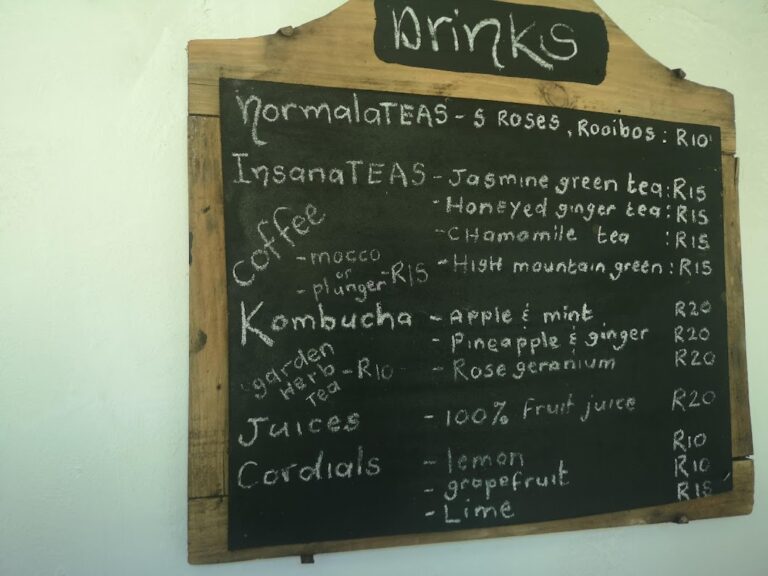 Drinks
NormalaTEAS - 5 ROSES, Rooibos: R10
InsanaTEAS - Jasmine green tea: R15
- Honeyed ginger tea: R15
- CHamomile tea : R15
- HIGH mountain green: R15
Coffee
- mocco
or
- plunger - R15
Kombucha - Apple & mint R20
- Pineapple & ginger R20
- Rose geranium R20
garden
Herb - R10
Tea
Juices - 100% fruit juice R20
Cordials - lemon R10
- grapefruit R10
- Lime R15